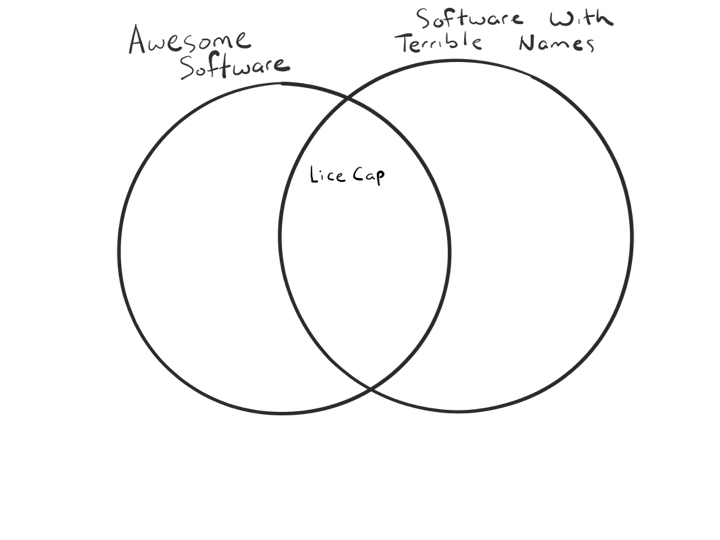 Awesome
Software
Software With
Terrible Names
Lice Cap